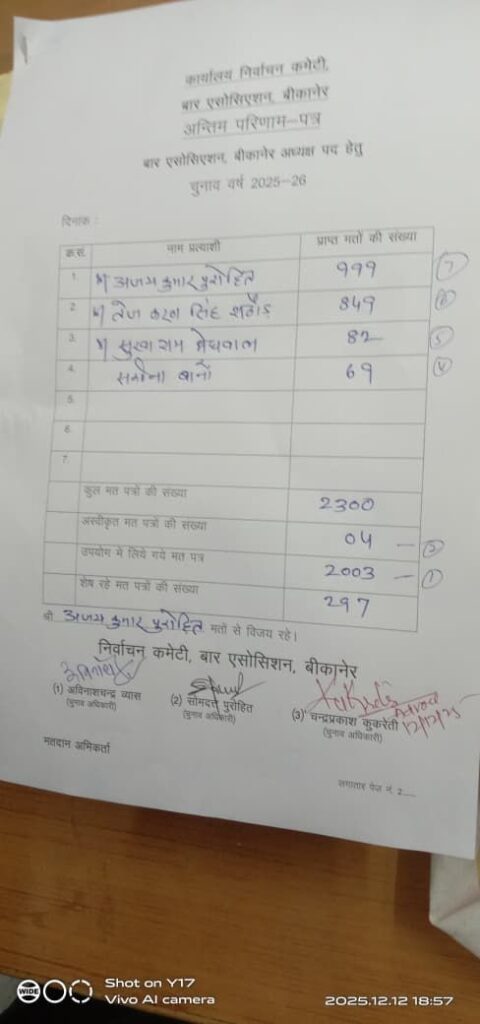 कार्यालय निर्वाचन कमेटी,
बार एसोसिएशन, बीकानेर
अन्तिम परिणाम–पत्र
बार एसोसिएशन, बीकानेर अध्यक्ष पद हेतु
चुनाव वर्ष 2025–26
दिनांक :
क.स. नाम प्रत्याशी प्राप्त मतों की संख्या
1. अजय कुमार पुरोहित 999 7
2. तेज करण सिंह राठौड़ 849 6
3. सुखा राम मेघवाल 82 5
4. सकीना बानों 69 4
5.
6.
7.
कुल मत पत्रों की संख्या 2300
अस्वीकृत मत पत्रों की संख्या 04 –
उपयोग में लिये गये मत पत्र 2003 – 1
शेष रहे मत पत्रों की संख्या 297
श्री अजय कुमार पुरोहित मतों से विजय रहे।
निर्वाचन कमेटी, बार एसोसिशन, बीकानेर
(1) अविनाशचन्द्र व्यास (2) सोमदत्त पुरोहित (3) चन्द्रप्रकाश कुकरेती
(चुनाव अधिकारी) (चुनाव अधिकारी) (चुनाव अधिकारी)
12/12/25
मतदान अभिकर्ता
लगातार पेज नं. 2....
WIDE
Shot on Y17
Vivo AI camera 2025.12.12 18:57